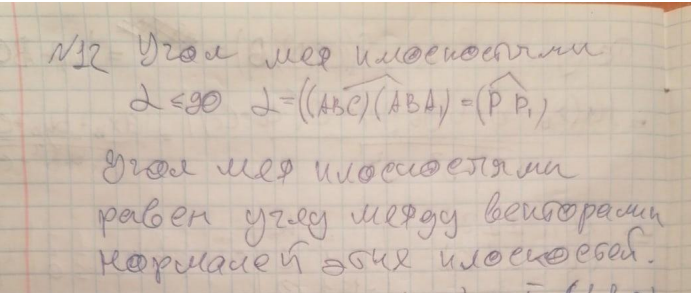 N12 Угол меж плоскостями
α ≤ 90 α = ((ABC)(ABA₁) = (P P₁)
Угол меж плоскостями
равен углу между векторами
нормалей этих плоскостей.